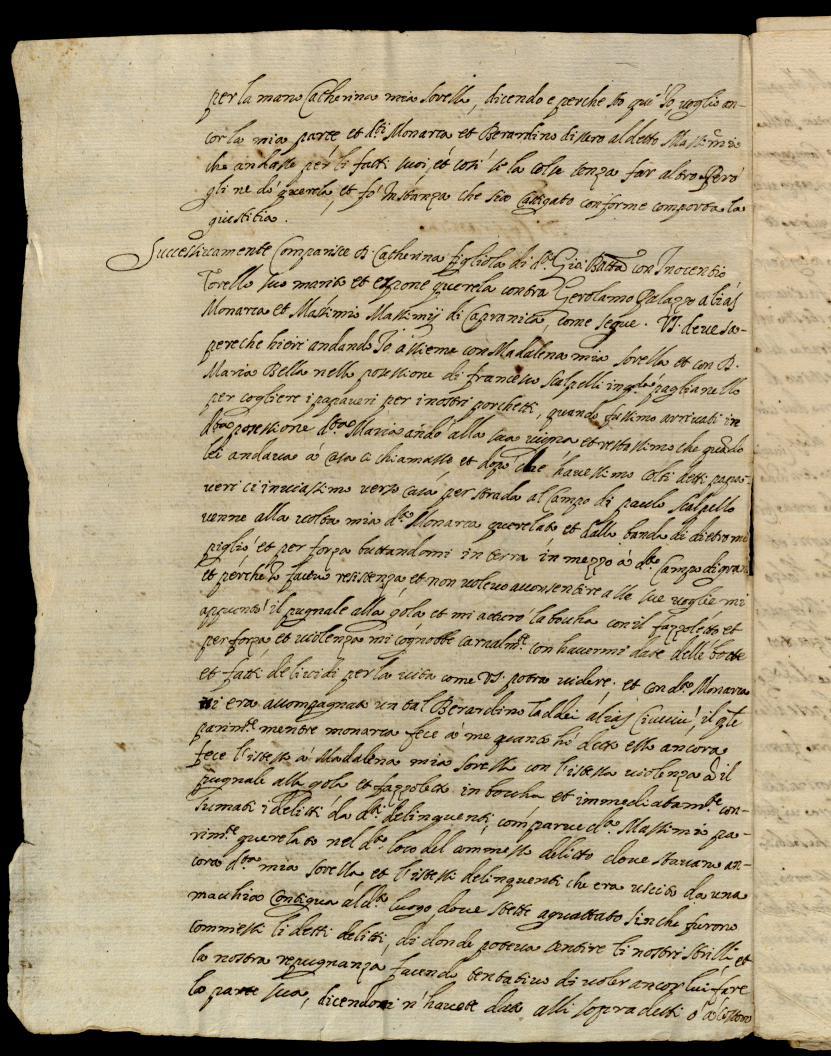 per la mano Catherina mia sorella, dicendo e perche sto qui Io, voglio an-
cor la mia parte et d.ti Monarca et Berardino dissero al detto Massimio
che andasse per li fatti suoi, et così se la colse senza far altro Però
gli ne dò querela, et fò Instanza che sia Castigato conforme comporta la
giustitia.
Successivamente Comparisce D. Catherina figliola di d.o Gio: Batta con Inocentio
Torello suo marito et espone querela contra Gerolamo Palazzo aliàs
Monarca et Massimio Massimij di Capranica, come segue. VS. deve sa-
pere che hieri andando Io assieme con Madalena mia sorella et con D.
Maria Bella nella posessione di francesco Scalpelli in q.ta paglianello
per cogliere i papaveri per i nostri porchetti, quando fussimo arrivati in
d.ta posessione d.ta Maria andò alla sua vigna et restassimo che quando
lei andava à casa ci chiamasse et dopo che havessimo colti detti papa-
veri ci inviassimo verso casa per strada al Campo di paulo Scalpello
venne alla volta mia d.o Monarca querelato et dalla banda di dietro mi
pigliò et per forza buttandomi in terra in mezzo à d.o Campo di grano
et perche Io facevo resistenza et non volevo acconsentire alle sue voglie mi
appuntò il pugnale alla gola et mi atturò la boccha con il fazzoletto et
per forza et violenza mi cognobbe carnalm.te con havermi date delle botte
et fatti de lividi per la vita come VS. potrà videre; et con d.o Monarca
vi era accompagnato un tal Berardino Taddei aliàs Ciucciù, il q.le
parim.te mentre monarca fece à me quanto hò detto esso ancora
fece l'istesso à Madalena mia sorella con l'istessa violenza d il
pugnale alla gola et fazzoletto in boccha et immediatam.te con-
sumati i delitti da d.ti delinquenti, comparve d.o Massimio pa-
rim.te querelato nel d.o loco del commesso delitto dove stavano an-
cora d.ta mia sorella et l'istessi delinquenti che era uscito da una
macchia Contigua al d.o luogo dove stette aguattato sinche furono
commessi li detti delitti, di donde poteva sentire li nostri strilli et
la nostra repugnanza facendo tentativo di voler ancor lui fare
la parte sua, dicendomi n'havete data alli sopra detti